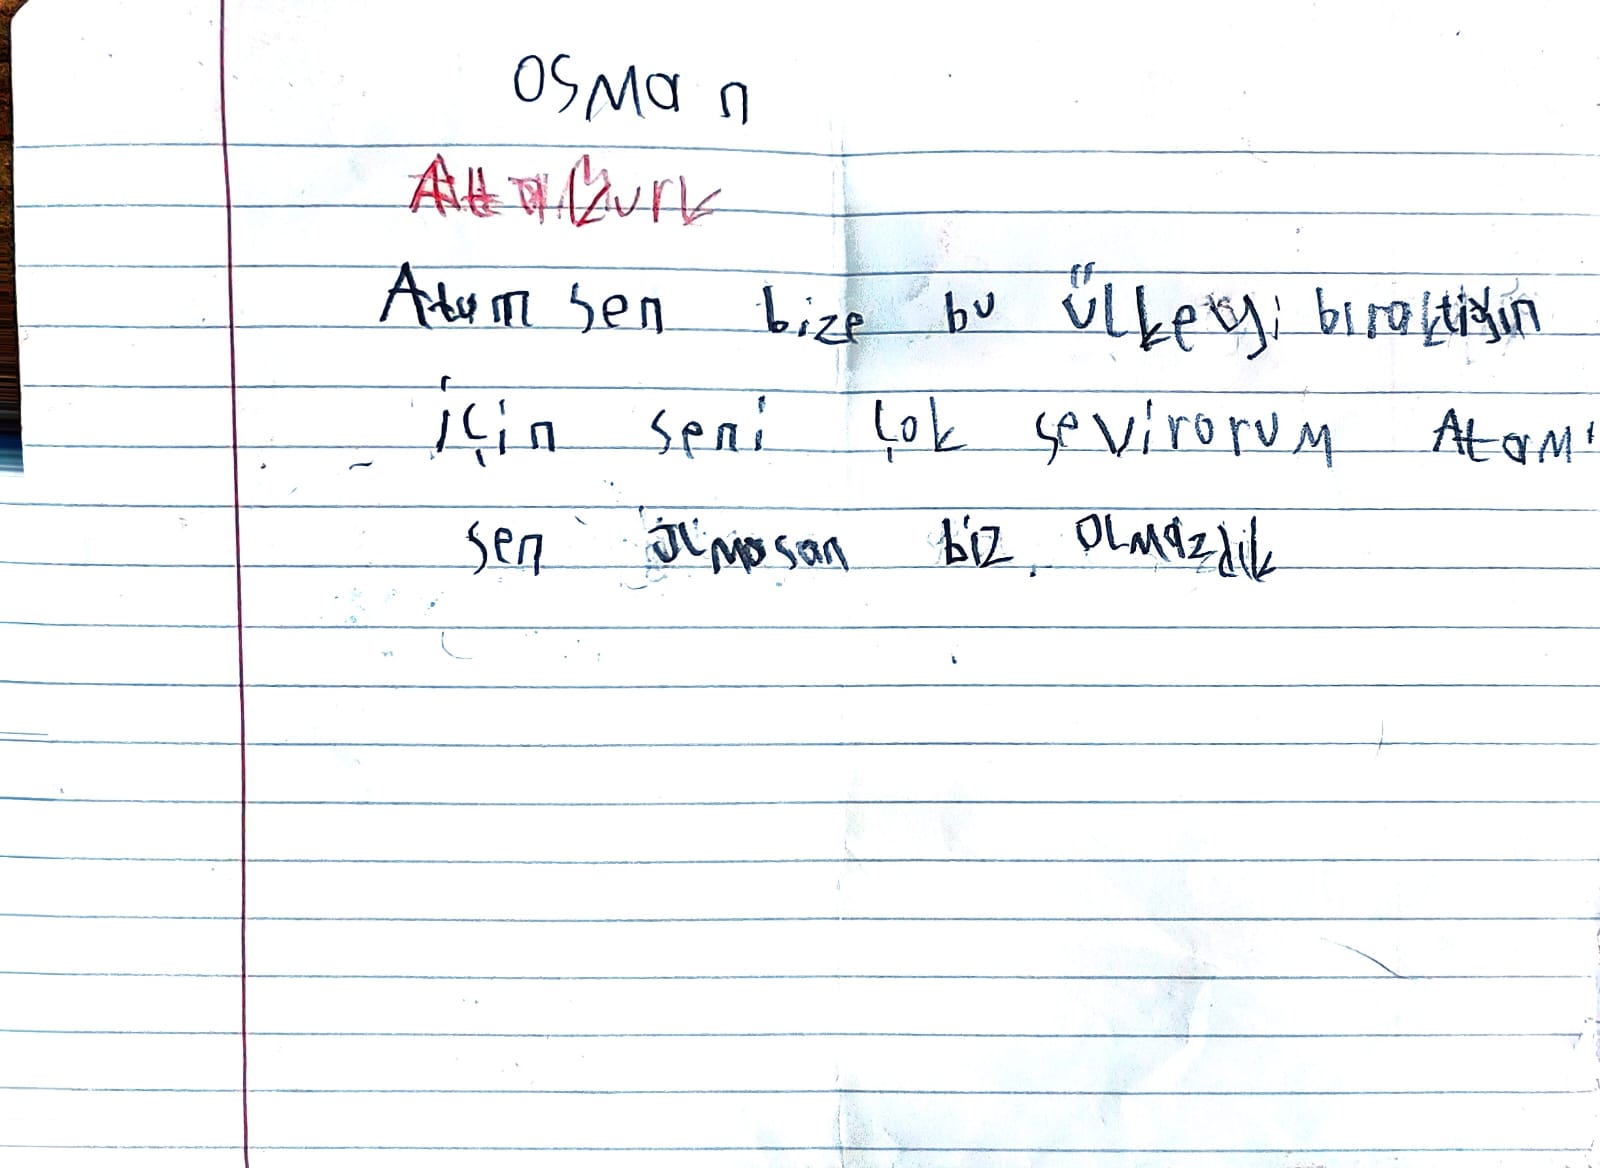 Osman
Atatürk
Atam sen bize bu ülkeyi bıraktiğin
için seni çok sevirorum Atam
sen olmasan biz olmazdik